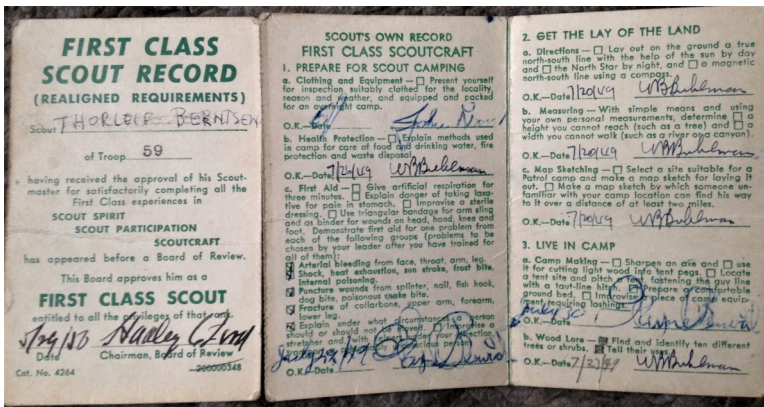 FIRST CLASS
SCOUT RECORD
(REALIGNED REQUIREMENTS)
Scout THORLEIF BERNTSEN
of Troop 59
having received the approval of his Scout-
master for satisfactorily completing all the
First Class experiences in
SCOUT SPIRIT
SCOUT PARTICIPATION
SCOUTCRAFT
has appeared before a Board of Review.
This Board approves him as a
FIRST CLASS SCOUT
entitled to all the privileges of that rank.
Date Chairman, Board of Review
Cat. No. 4264 200000348
SCOUT'S OWN RECORD
FIRST CLASS SCOUTCRAFT
1. PREPARE FOR SCOUT CAMPING
a. Clothing and Equipment — Present yourself
for inspection suitably clothed for the locality,
season and weather, and equipped and packed
for an overnight camp.
O.K.—Date
b. Health Protection — Explain methods used
in camp for care of food and drinking water, fire
protection and waste disposal
O.K.—Date 7/24/49
c. First Aid — Give artificial respiration for
three minutes. Explain danger of taking laxa-
tive for pain in stomach. Improvise a sterile
dressing. Use triangular bandage for arm sling
and as binder for wounds on head, hand, knee and
foot. Demonstrate first aid for one problem from
each of the following groups (problems to be
chosen by your leader after you have trained for
all of them):
Arterial bleeding from face, throat, arm, leg.
Shock, heat exhaustion, sun stroke, frost bite,
internal poisoning.
Puncture wounds from splinter, nail, fish hook,
dog bite, poisonous snake bite.
Fracture of collarbone, upper arm, forearm,
lower leg.
Explain under what circumstances a person
should or should not be moved. Improvise a
stretcher and with under your direction,
person
O.K.—Date
2. GET THE LAY OF THE LAND
a. Directions — Lay out on the ground a true
north-south line with the help of the sun by day
and the North Star by night, and a magnetic
north-south line using a compass.
O.K.—Date 7/20/49
b. Measuring — With simple means and using
your own personal measurements, determine a
height you cannot reach (such as a tree) and a
width you cannot walk (such as a river or a canyon).
O.K.—Date 7/20/49
c. Map Sketching — Select a site suitable for a
Patrol camp and make a map sketch for laying it
out. Make a map sketch by which someone un-
familiar with your camp location can find his way
to it over a distance of at least two miles.
O.K.—Date 7/20/49
3. LIVE IN CAMP
a. Camp Making — Sharpen an axe and use
it for cutting light wood into tent pegs. Locate
a tent site and pitch fastening the guy line
with a taut-line hitch. Prepare a comfortable
ground bed. Improvise a piece of camp equip-
ment requiring lashings.
O.K.—Date
b. Wood Lore — Find and identify ten different
trees or shrubs. Tell their uses.
O.K.—Date 7/27/49